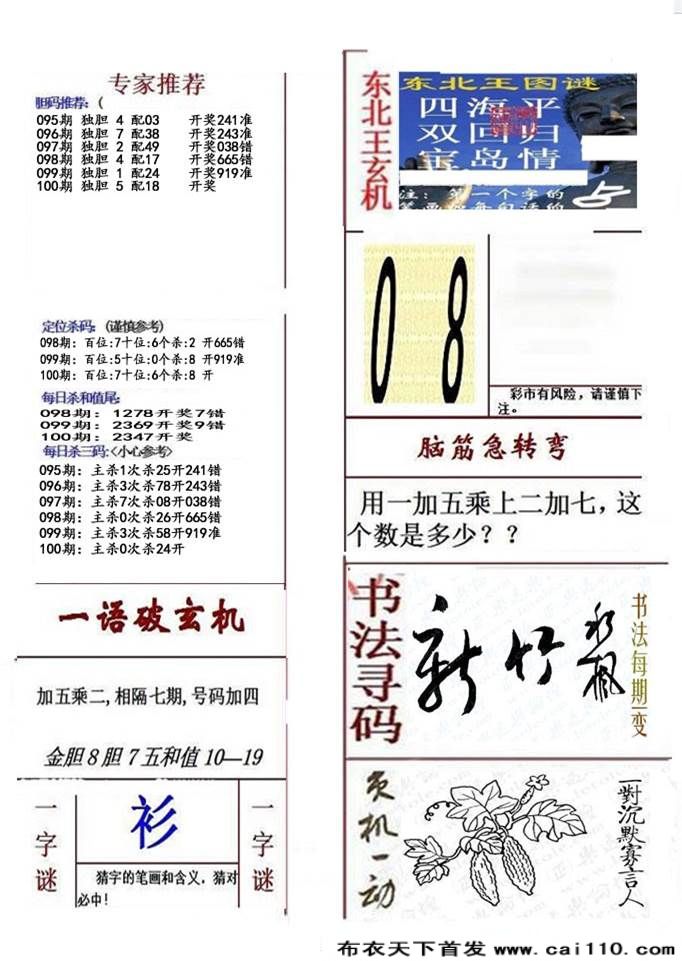 专家推荐
胆码推荐:（
095期 独胆 4 配03 开奖241准
096期 独胆 7 配38 开奖243准
097期 独胆 2 配49 开奖038错
098期 独胆 4 配17 开奖665错
099期 独胆 1 配24 开奖919准
100期 独胆 5 配18 开奖
定位杀码:（谨慎参考）
098期：百位:7十位:6个杀:2 开665错
099期：百位:5十位:0个杀:8 开919准
100期：百位:7十位:6个杀:8 开
每日杀和值尾:
098期：1278开奖7错
099期：2369开奖9错
100期：2347开奖
每日杀三码:<小心参考>
095期：主杀1次杀25开241错
096期：主杀3次杀78开243错
097期：主杀7次杀08开038错
098期：主杀0次杀26开665错
099期：主杀3次杀58开919准
100期：主杀0次杀24开
一语破玄机
加五乘二,相隔七期,号码加四
金胆8胆7五和值10—19
一字谜
衫
猜字的笔画和含义，猜对
必中!
一字谜
东北王玄机
东北王图谜
四海平
双回归
宝岛情
注：第一个字的
5
0 8
彩市有风险，请谨慎下
注。
脑筋急转弯
用一加五乘上二加七，这
个数是多少？？
书法寻码
新竹
书法每期一变
灵机一动
一對沉默寡言人
布衣天下首发 www.cai110.com